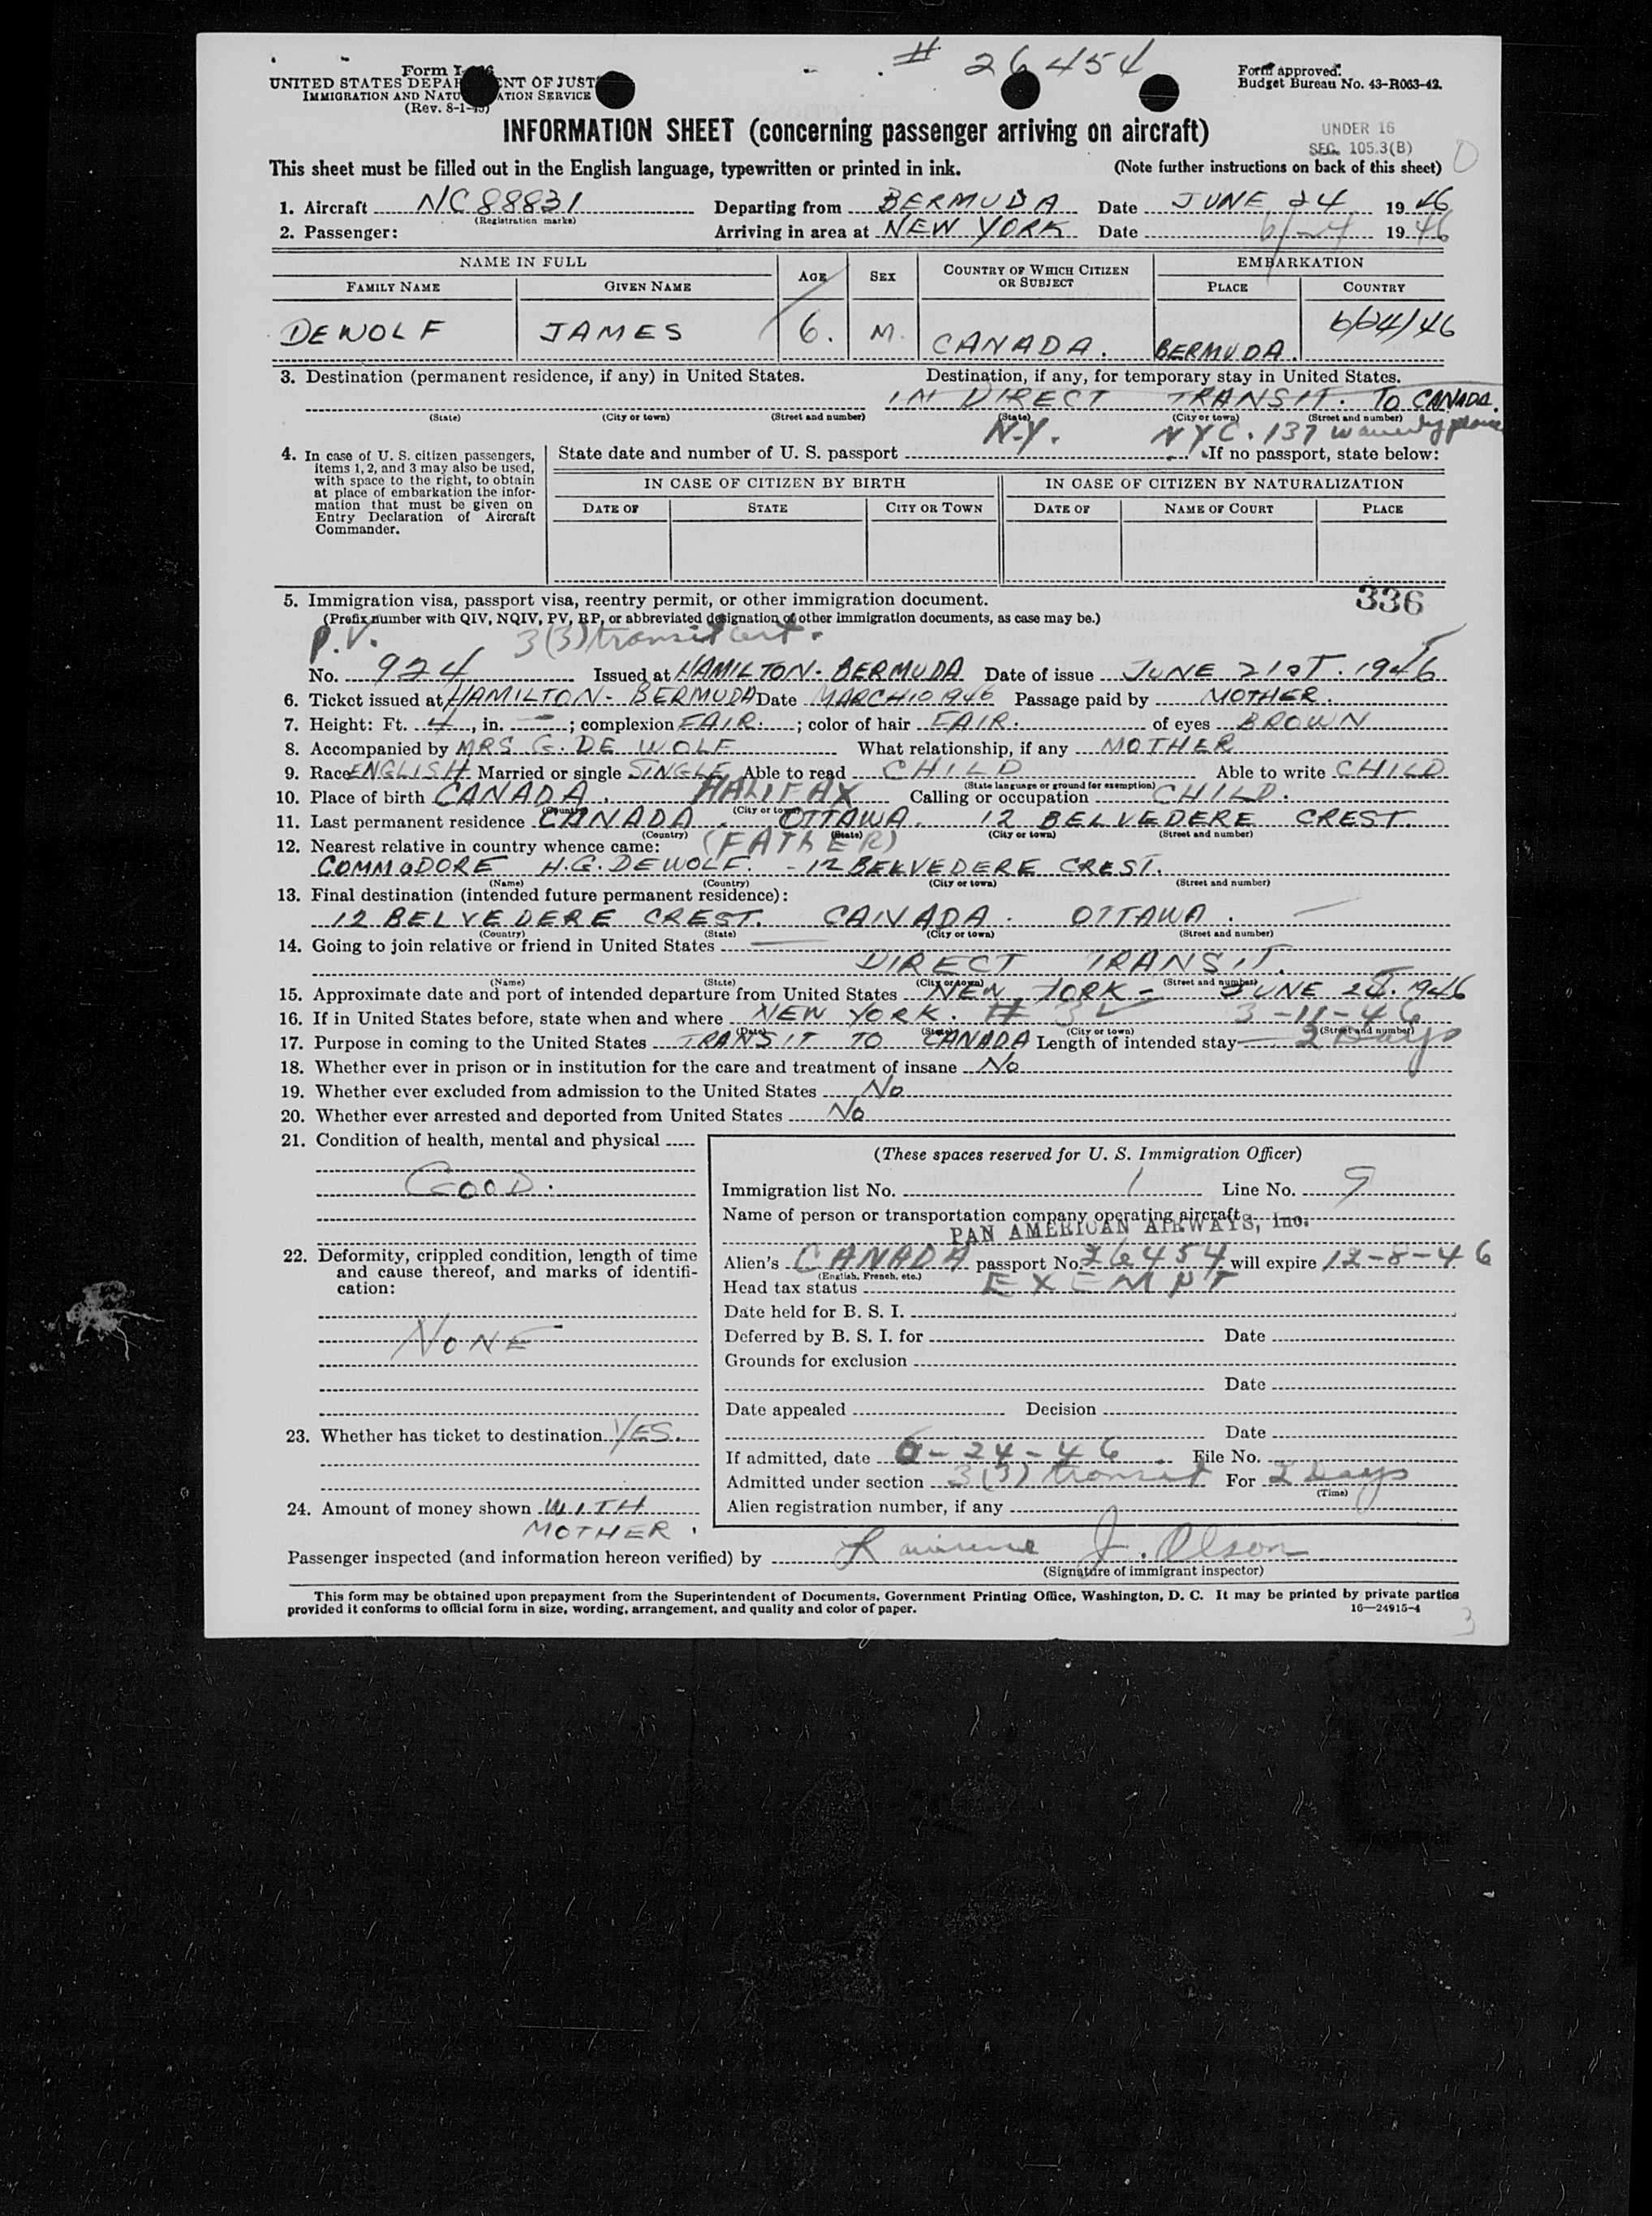 # 26454
Form I-
UNITED STATES DEPAR ENT OF JUST
IMMIGRATION AND NATU ATION SERVICE
(Rev. 8-1-45)
Form approved.
Budget Bureau No. 43-R063-42.
INFORMATION SHEET (concerning passenger arriving on aircraft)
UNDER 16
SEC. 105.3(B)
This sheet must be filled out in the English language, typewritten or printed in ink. (Note further instructions on back of this sheet)
1. Aircraft NC 88831 Departing from BERMUDA Date JUNE 24 1946
(Registration marks)
2. Passenger: Arriving in area at NEW YORK Date 6/24 1946
NAME IN FULL AGE SEX COUNTRY OF WHICH CITIZEN OR SUBJECT EMBARKATION
FAMILY NAME GIVEN NAME PLACE COUNTRY
DEWOLF JAMES 6. M. CANADA. BERMUDA. 6/24/46
3. Destination (permanent residence, if any) in United States. Destination, if any, for temporary stay in United States.
IN DIRECT TRANSIT. TO CANADA.
(State) (City or town) (Street and number) (State) (City or town) (Street and number)
N.Y. NYC. 137 Waverly place
4. In case of U. S. citizen passengers, items 1, 2, and 3 may also be used, with space to the right, to obtain at place of embarkation the information that must be given on Entry Declaration of Aircraft Commander.
State date and number of U. S. passport If no passport, state below:
IN CASE OF CITIZEN BY BIRTH IN CASE OF CITIZEN BY NATURALIZATION
DATE OF STATE CITY OR TOWN DATE OF NAME OF COURT PLACE
336
5. Immigration visa, passport visa, reentry permit, or other immigration document.
(Prefix number with QIV, NQIV, PV, RP, or abbreviated designation of other immigration documents, as case may be.)
P.V. 3(3) transit cert.
No. 924 Issued at HAMILTON - BERMUDA Date of issue JUNE 21ST. 1946
6. Ticket issued at HAMILTON - BERMUDA Date MARCH 10 1946 Passage paid by MOTHER.
7. Height: Ft. 4, in. —; complexion FAIR.; color of hair FAIR. of eyes BROWN
8. Accompanied by MRS G. DE WOLF What relationship, if any MOTHER
9. Race ENGLISH Married or single SINGLE Able to read CHILD Able to write CHILD
(State language or ground for exemption)
10. Place of birth CANADA. HALIFAX Calling or occupation CHILD.
(Country) (City or town)
11. Last permanent residence CANADA. OTTAWA. 12 BELVEDERE CREST.
(Country) (State) (City or town) (Street and number)
12. Nearest relative in country whence came: (FATHER)
COMMODORE H.G. DEWOLF. - 12 BELVEDERE CREST.
(Name) (Country) (City or town) (Street and number)
13. Final destination (intended future permanent residence):
12 BELVEDERE CREST. CANADA. OTTAWA.
(Country) (State) (City or town) (Street and number)
14. Going to join relative or friend in United States —
DIRECT TRANSIT.
(Name) (State) (City or town) (Street and number)
15. Approximate date and port of intended departure from United States NEW YORK - JUNE 25. 1946
16. If in United States before, state when and where NEW YORK. # 3 3-11-46
(Date) (State) (City or town) (Street and number)
17. Purpose in coming to the United States TRANSIT TO CANADA Length of intended stay 2 Days
18. Whether ever in prison or in institution for the care and treatment of insane No
19. Whether ever excluded from admission to the United States No
20. Whether ever arrested and deported from United States No
21. Condition of health, mental and physical
GOOD.
22. Deformity, crippled condition, length of time and cause thereof, and marks of identification:
NONE
23. Whether has ticket to destination YES.
24. Amount of money shown WITH
MOTHER.
(These spaces reserved for U. S. Immigration Officer)
Immigration list No. 1 Line No. 9
Name of person or transportation company operating aircraft
PAN AMERICAN AIRWAYS, Inc.
Alien's CANADA passport No. 26454 will expire 12-8-46
(English, French, etc.)
Head tax status EXEMPT
Date held for B. S. I.
Deferred by B. S. I. for Date
Grounds for exclusion
Date
Date appealed Decision
Date
If admitted, date 6-24-46 File No.
Admitted under section 3(3) transit For 2 Days
(Time)
Alien registration number, if any
Passenger inspected (and information hereon verified) by J. Olson
(Signature of immigrant inspector)
This form may be obtained upon prepayment from the Superintendent of Documents, Government Printing Office, Washington, D. C. It may be printed by private parties
provided it conforms to official form in size, wording, arrangement, and quality and color of paper. 16—24915-4
3